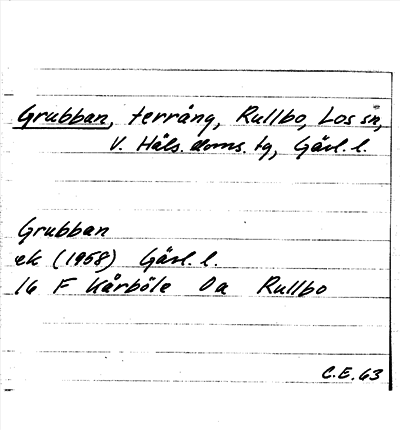 Grubban, terräng, Rullbo, Los sn,
V. Häls. doms. tg, Gävl. l.
Grubban
ek (1958) Gävl. l.
16 F Kårböle 0a Rullbo
C.E. 63